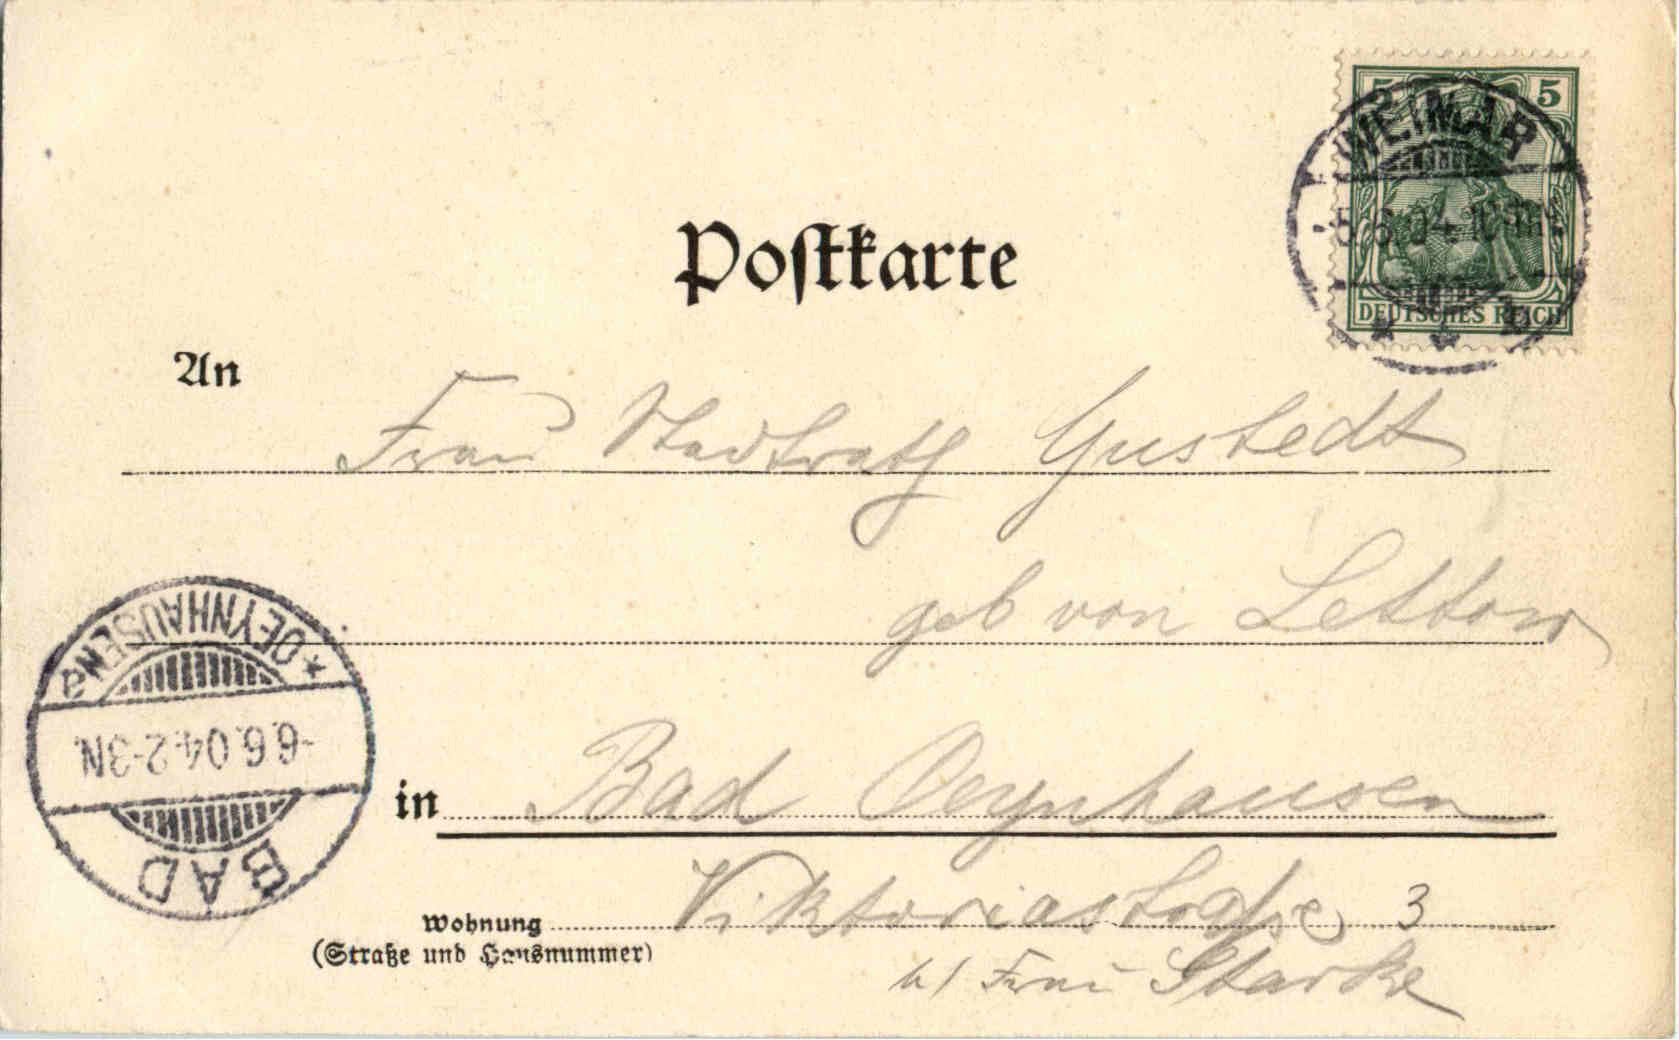 5 5
WEIMAR
5.6.04.
DEUTSCHES REICH
Postkarte
An
Frau Stadtrath Gustedt
geb von Lettow
in Bad Oeynhausen
Wohnung Viktoriastraße 3
(Straße und Hausnummer)
b/ Frau Starke
BAD
-6.6.04.2-3N.
* OEYNHAUSEN a